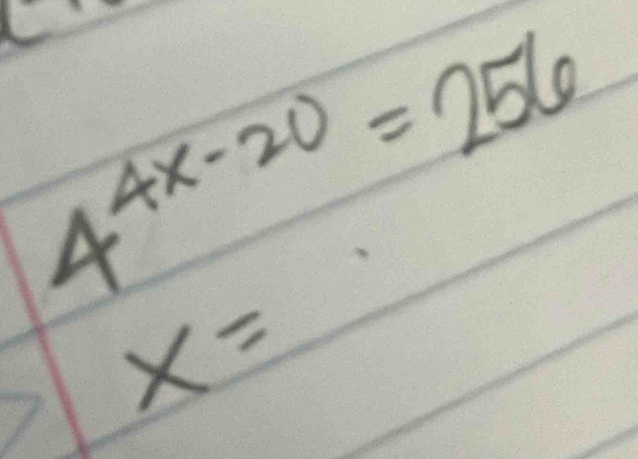 4^{4x-20} = 256
x =